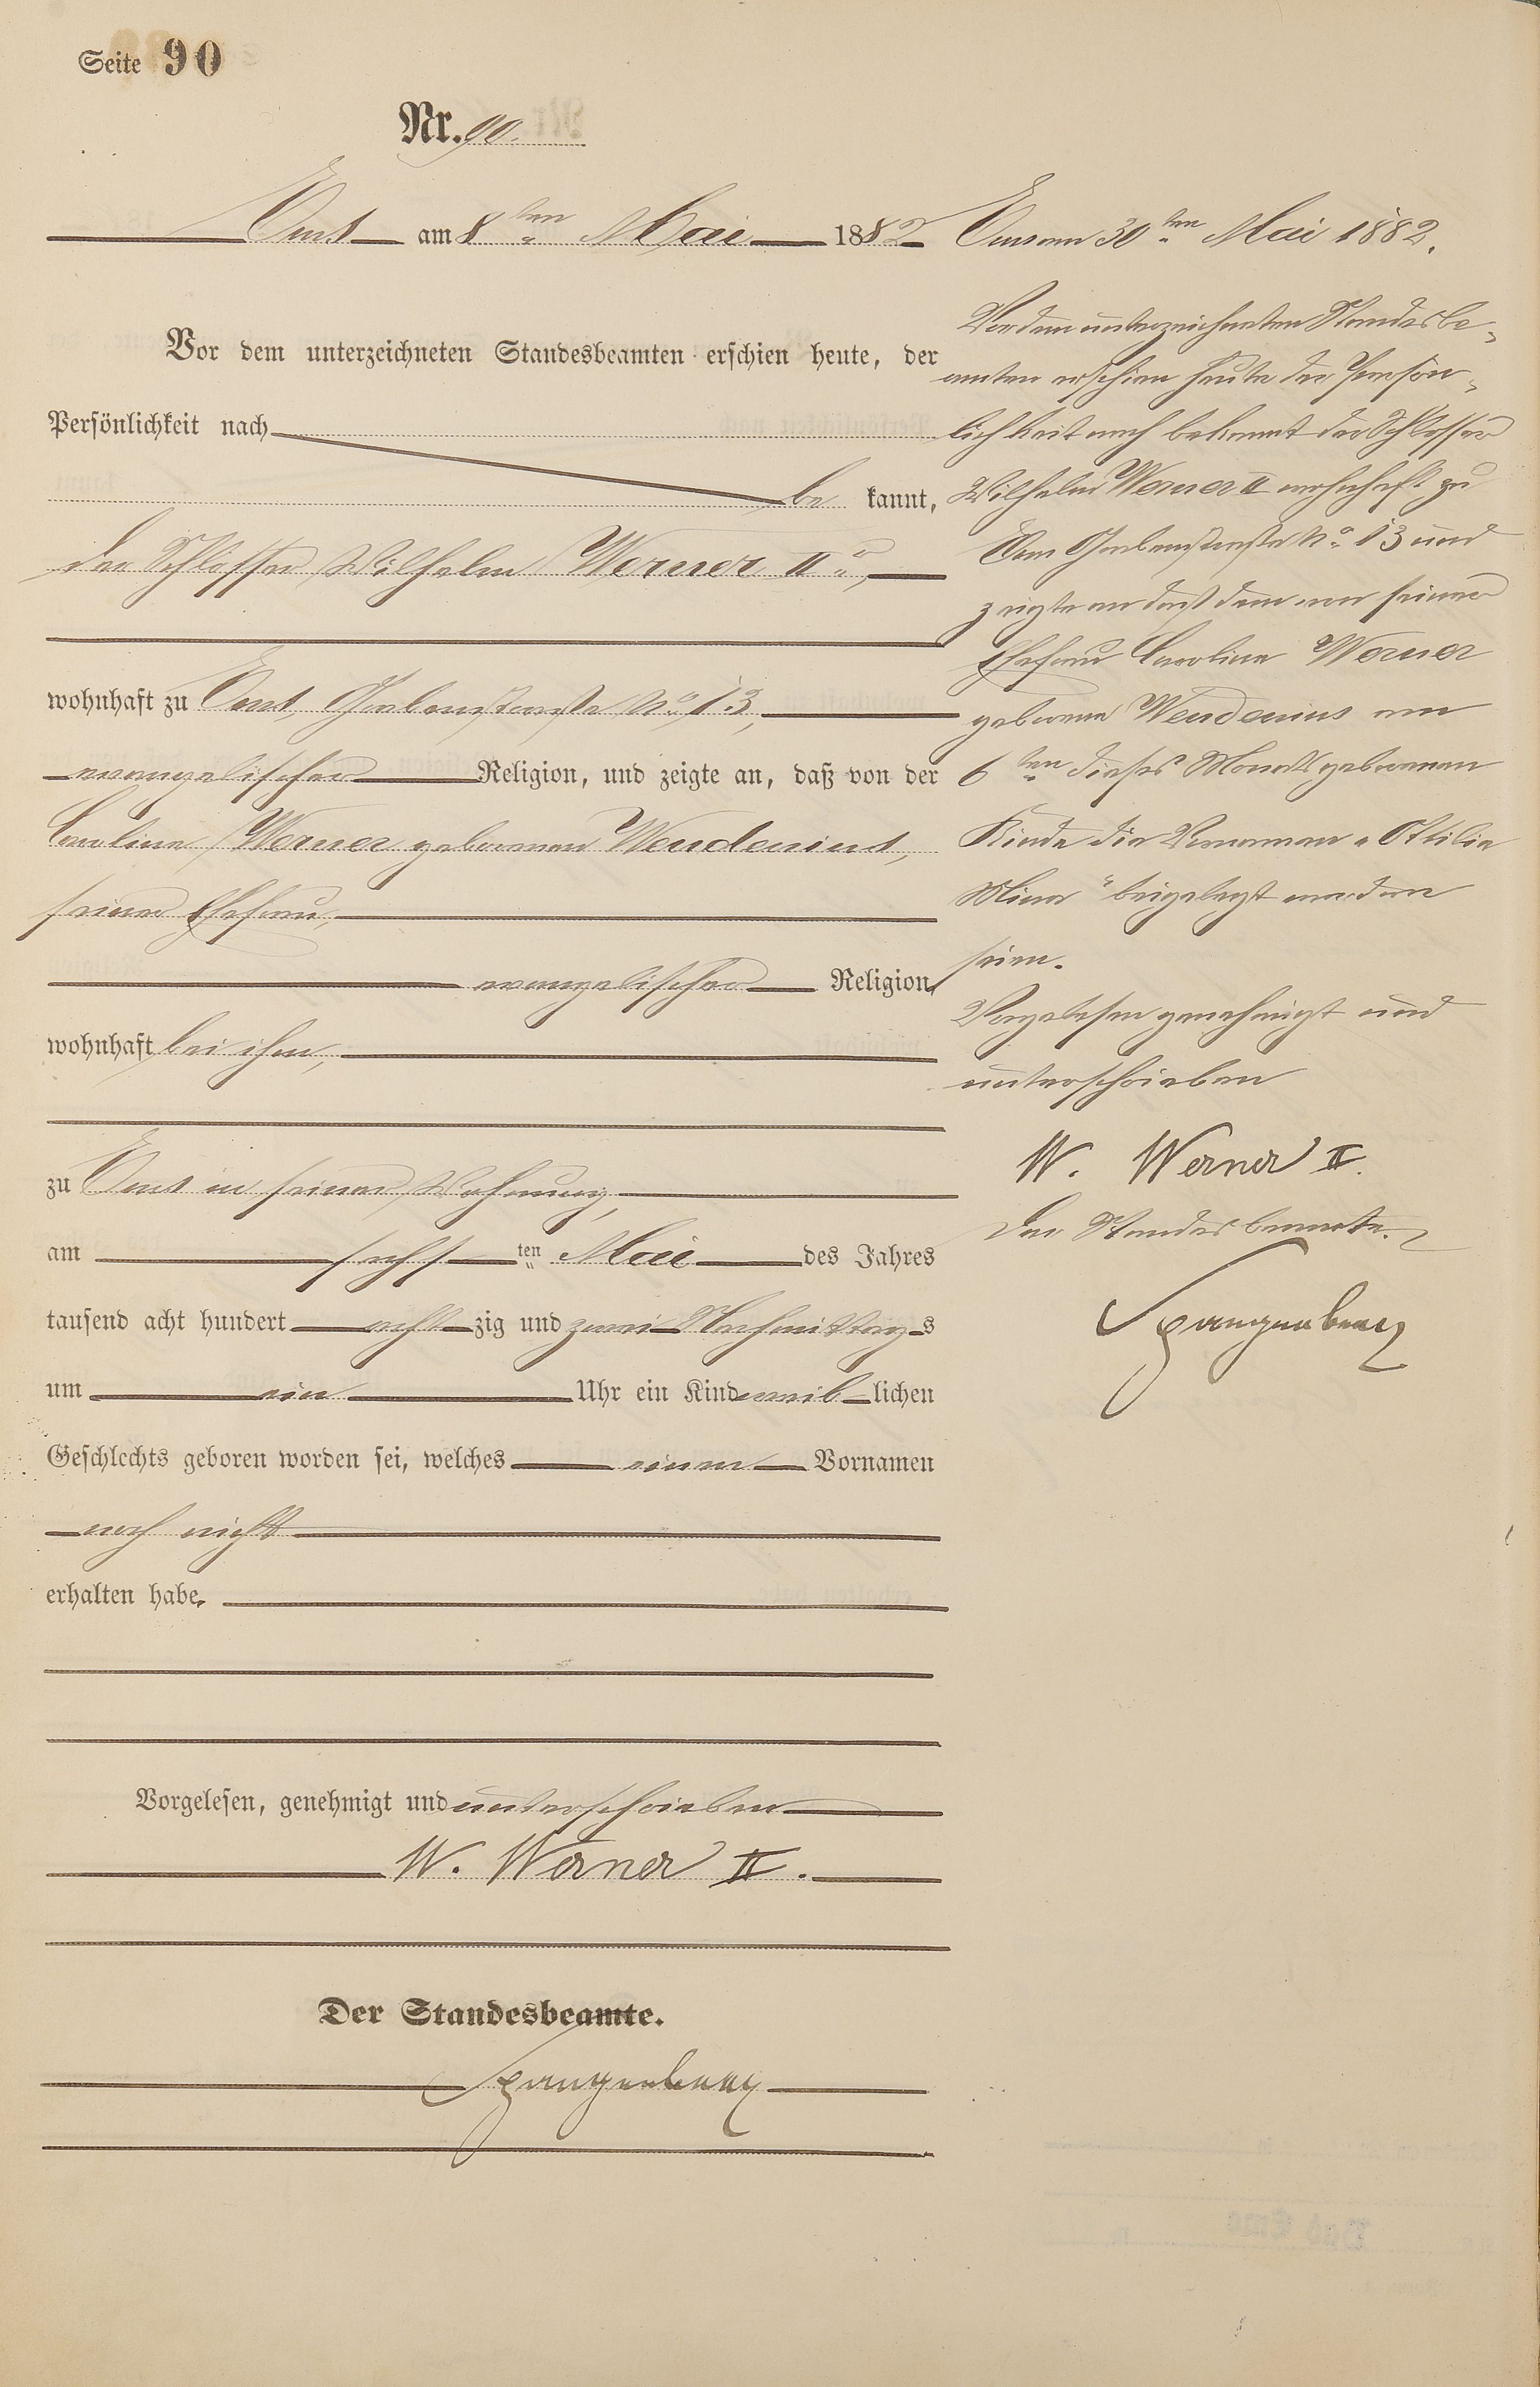 Seite 90
Nr. 90.
Ems am 8ten Mai 1882
Vor dem unterzeichneten Standesbeamten erschien heute, der
Persönlichkeit nach
be kannt,
der Schlosser Wilhelm Werner II.,
wohnhaft zu Ems, No. 13,
evangelischer Religion, und zeigte an, daß von der
Caroline Werner geborenen Wendenius,
seiner Ehefrau,
evangelischer Religion,
wohnhaft bei ihm,
zu Ems in seiner Wohnung,
am sechsten Mai des Jahres
tausend acht hundert achtzig und zwei Nachmittags
um ein Uhr ein Kind weiblichen
Geschlechts geboren worden sei, welches einen Vornamen
noch nicht
erhalten habe.
Vorgelesen, genehmigt und unterschrieben
W. Werner II.
Der Standesbeamte.
Spangenberg
Ems am 30ten Mai 1882.
Vor dem unterzeichneten Standesbe-
amten erschien heute der Persön-
lichkeit nach bekannt der Schlosser
Wilhelm Werner II wohnhaft zu
Ems No. 13 und
zeigte an daß dem von seiner
Ehefrau Caroline Werner
geborene Wendenius am
6ten dieses Monats geborenen
Kinde die Vornamen „Ottilie
Mina“ beigelegt worden
seien.
Vorgelesen genehmigt und
unterschrieben
W. Werner II.
Der Standesbeamte.
Spangenberg